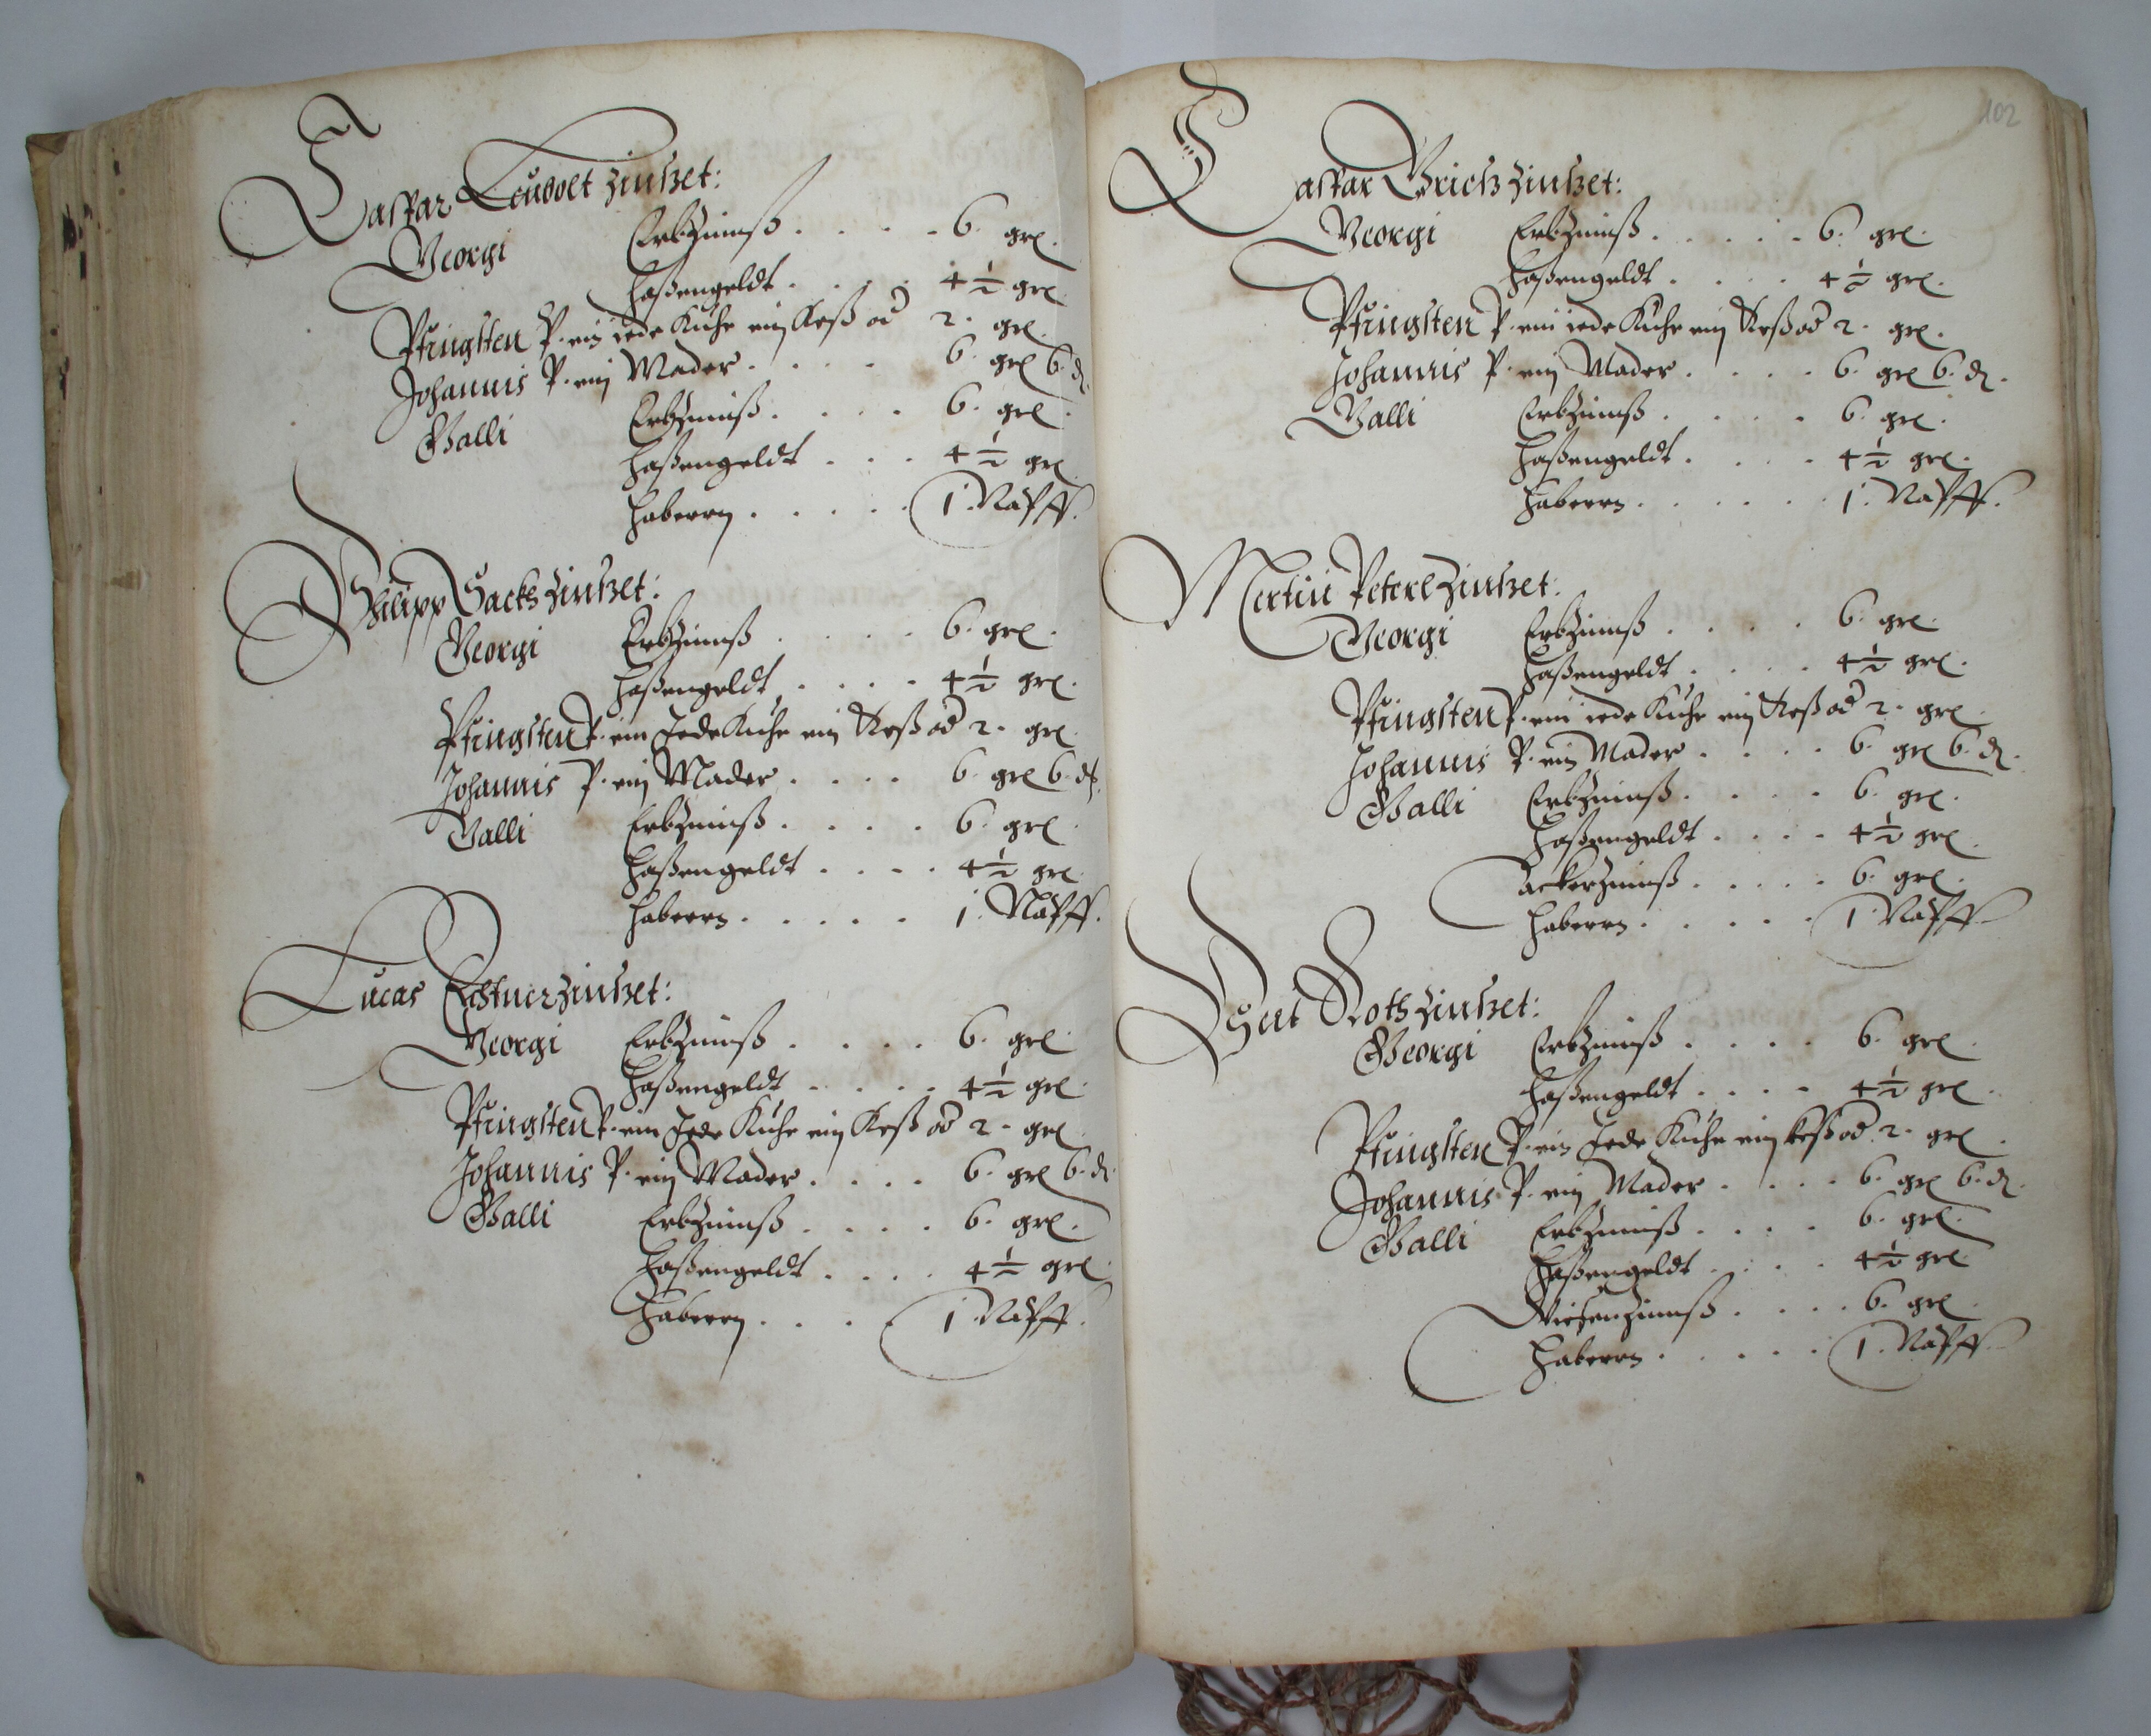 Caspar Leupolt Zinßet:
Georgi Erbzinnß . . . . 6. grl.
Haßengeldt . . . . 4 ½ grl.
Pfingsten P. ein iede Kuhe ein Keß od 2. grl.
Johannis P. ein Mader . . . . 6. grl 6. d.
Galli Erbzinnß . . . . 6. grl.
Haßengeldt . . . 4 ½ grl
Habern . . . . . 1. Näpff.
Philipp Sacks Zinßet:
Georgi Erbzinnß . . . . 6. grl.
Haßengeldt . . . . 4 ½ grl.
Pfingsten P. ein Jede Kuhe ein Keß od 2. grl.
Johannis P. ein Mader . . . . 6. grl 6. d.
Galli Erbzinnß . . . . 6. grl.
Haßengeldt . . . . 4 ½ grl.
Habern . . . . . 1. Näpff.
Lucas Zinßet:
Georgi Erbzinnß . . . . 6. grl.
Haßengeldt . . . . 4 ½ grl.
Pfingsten P. ein Jede Kuhe ein Keß od 2. grl
Johannis P. ein Mader . . . . 6. grl 6. d.
Galli Erbzinnß . . . . 6. grl.
Haßengeldt . . . . 4 ½ grl.
Habern . . . . 1. Näpff.
102
Caspar Zinßet:
Georgi Erbzinnß . . . . . 6. grl.
Haßengeldt . . . . 4 ½ grl.
Pfingsten P. ein iede Kuhe ein Keß od 2. grl.
Johannis P. ein Mader . . . . 6. grl 6. d.
Galli Erbzinnß . . . . 6. grl.
Haßengeldt . . . . 4 ½ grl.
Habern . . . . . . 1. Näpff.
Mertin Peterl Zinßet:
Georgi Erbzinnß . . . . 6. grl.
Haßengeldt . . . . 4 ½ grl.
Pfingsten P. ein iede Kuhe ein Keß od 2. grl.
Johannis P. ein Mader . . . . 6. grl 6. d.
Galli Erbzinnß . . . . 6. grl.
Haßengeldt . . . . 4 ½ grl.
Ackerzinnß . . . . . 6. grl.
Habern . . . . . 1. Näpff.
Veit Roth Zinßet:
Georgi Erbzinnß . . . . 6. grl.
Haßengeldt . . . . 4 ½ grl.
Pfingsten P. ein Jede Kuhe ein keß od 2. grl.
Johannis P. ein Mader . . . . 6. grl 6. d.
Galli Erbzinnß . . . . 6. grl.
Haßengeldt . . . . 4 ½ grl
Wiesenzinnß . . . . 6. grl.
Habern . . . . . 1. Näpff.